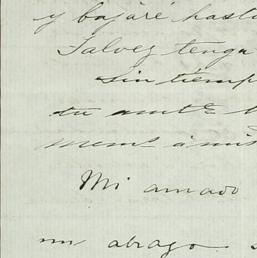 y bajaré hasta
Talvez tenga
Sin tiemp
tu amte
Mi amado
un abrazo